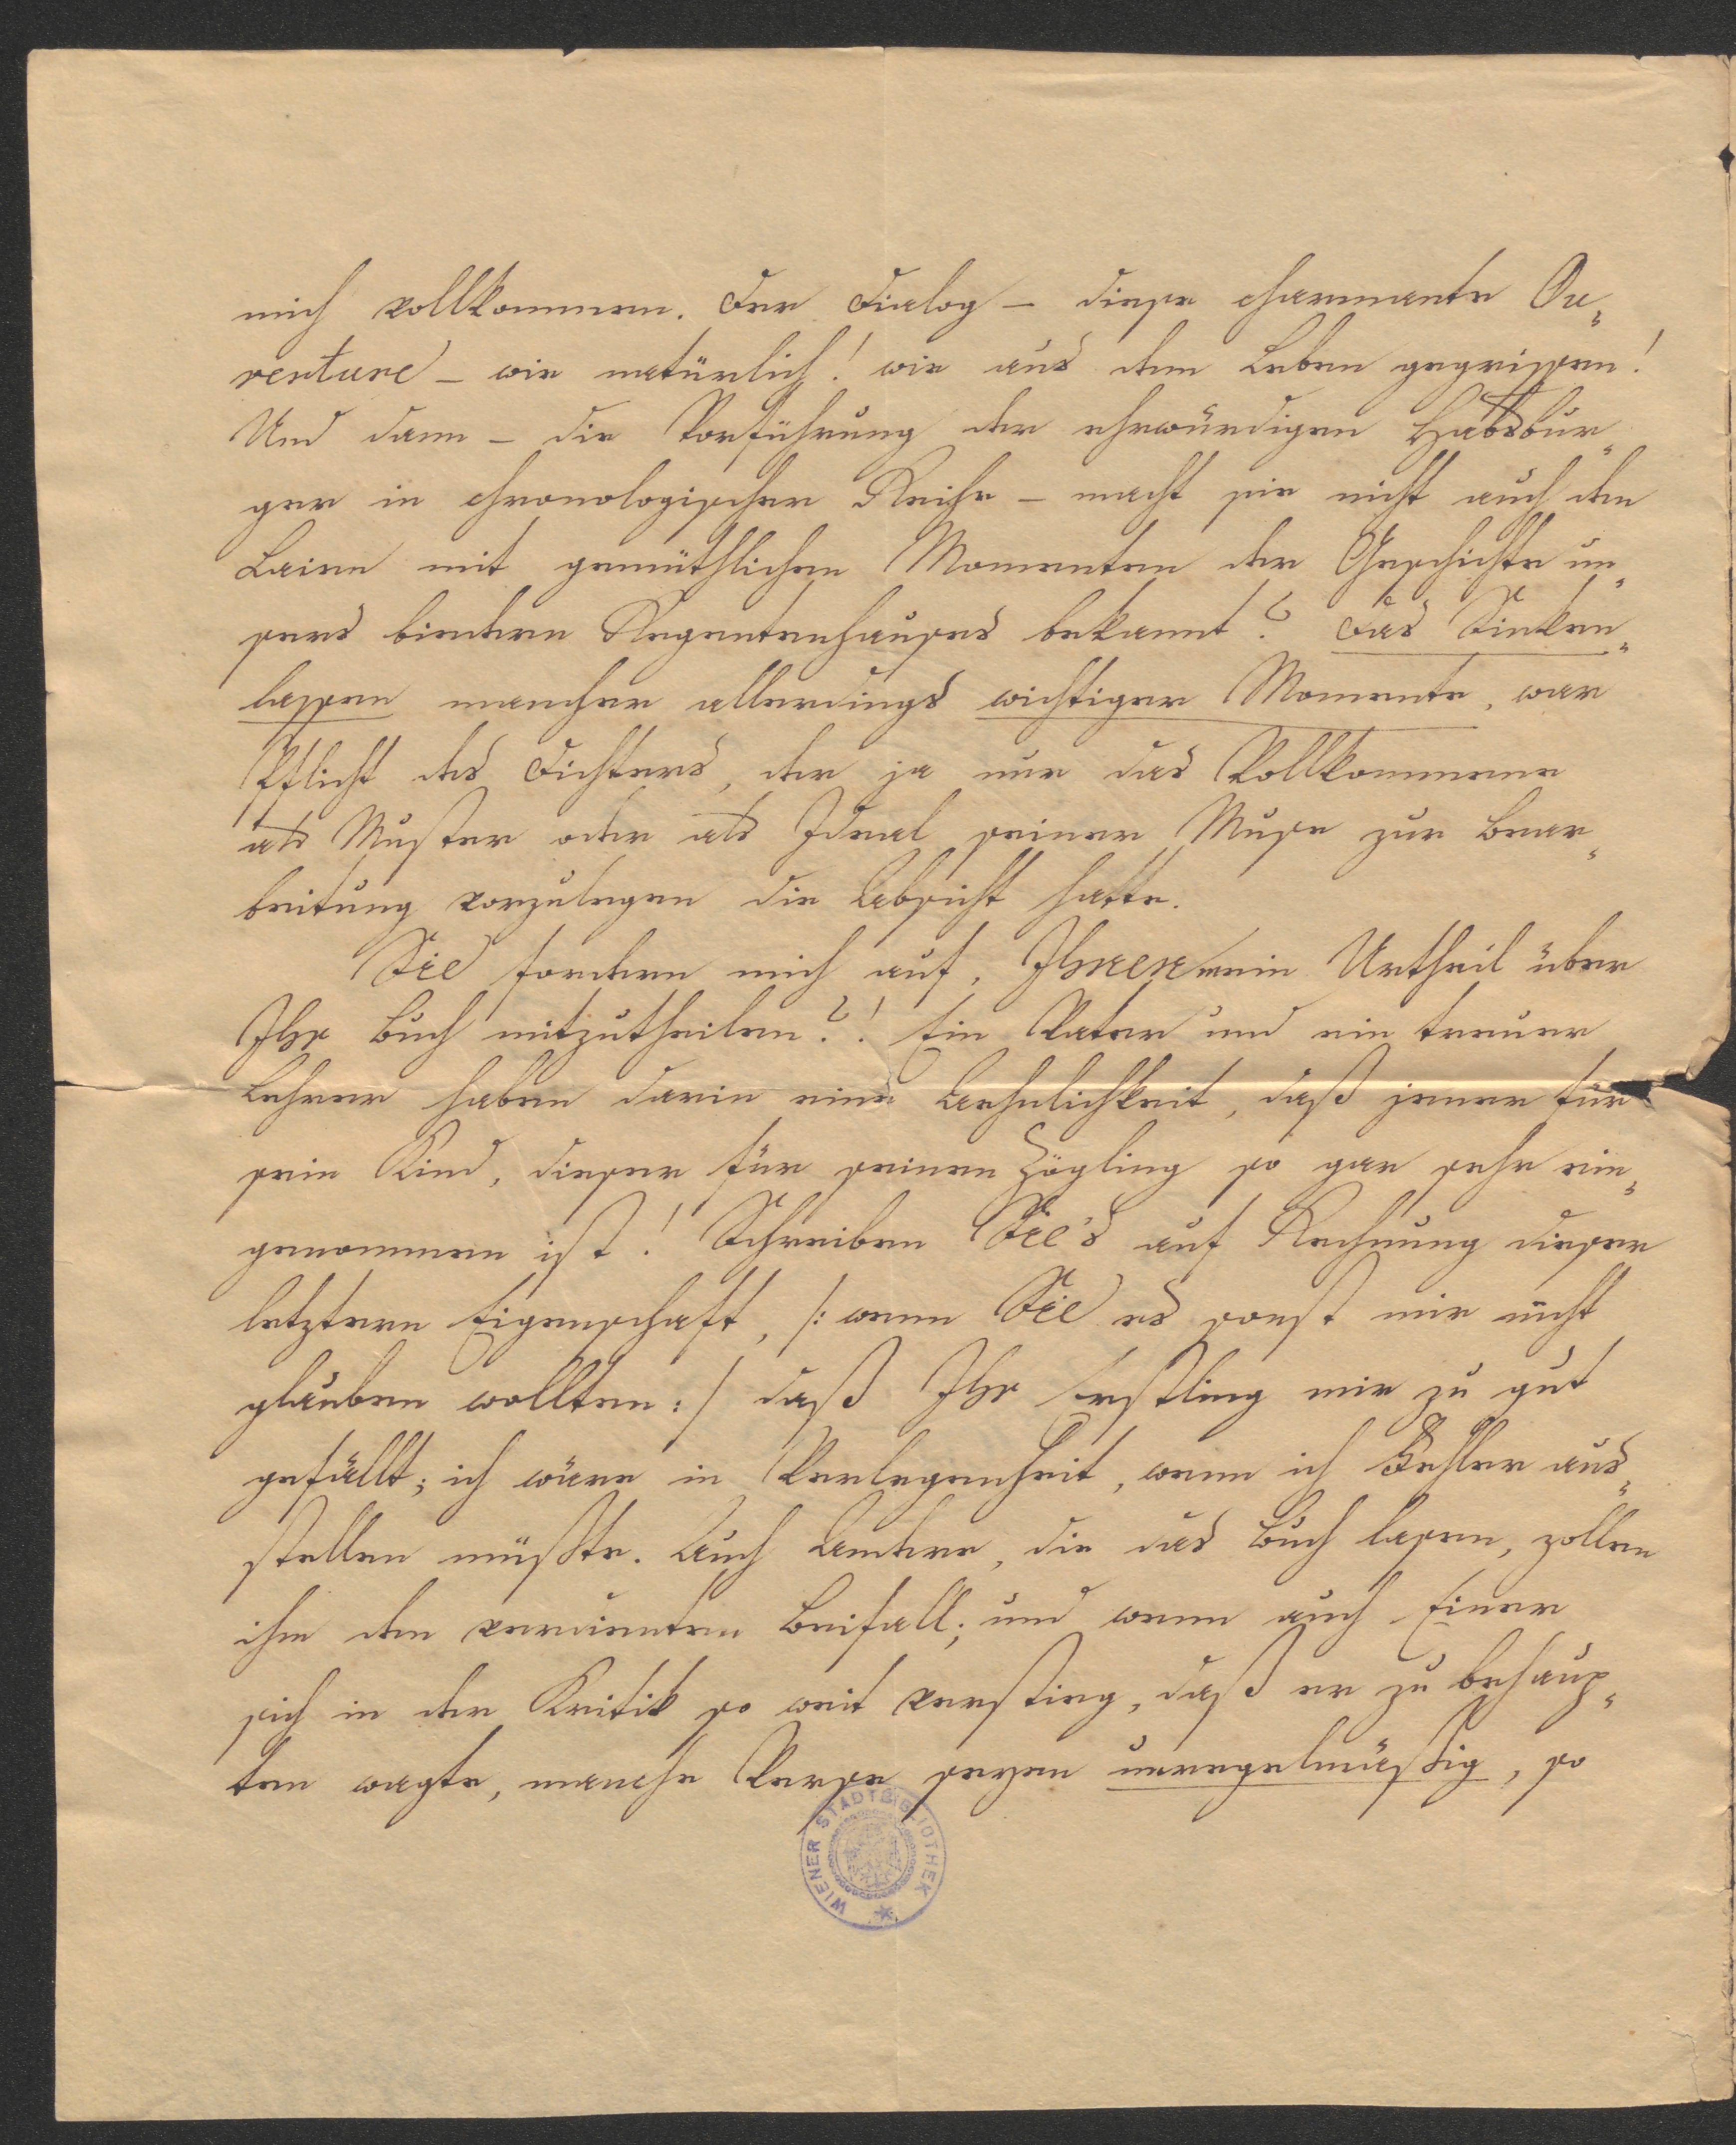 mich vollkommen. Der Dialog – diese charmante Ou„
verture – wie natürlich! wie aus dem Leben gegriffen!
Und dann – die Vorführung der ehrwürdigen Habsbur„
ger in chronologischer Reihe – macht sie nicht auch den
Laien mit gemüthlichen Momenten der Geschichte un„
sers biedern Regentenhauses bekannt? Das Sinken„
lassen mancher allerdings wichtiger Momente, war
Pflicht des Dichters, der ja nur das Vollkommene
als Muster oder als Ideal seiner Muse zur Bear„
beitung vorzulegen die Absicht hatte.
Sie fordern mich auf, Ihnen mein Urtheil über
Ihr Buch mitzutheilen?! Ein Vater und ein treuer
Lehrer haben darin eine Aehnlichkeit, daß jener für
sein Kind, dieser für seinen Zögling so gar sehr ein„
genommen ist! Schreiben Sie's auf Rechnung dieser
letztern Eigenschaft, /: wenn Sie es sonst mir nicht
glauben wollten :/ daß Ihr Erstling mir zu gut
gefällt; ich wäre in Verlegenheit, wenn ich Fehler aus„
stellen müßte. Auch Andere, die das Buch lasen, zollen
ihm den verdienten Beifall; und wenn auch Einer
sich in der Kritik so weit verstieg, daß er zu behaup„
ten wagte, manche Verse seyen unregelmäßig, so
WIENER STADTBIBLIOTHEK